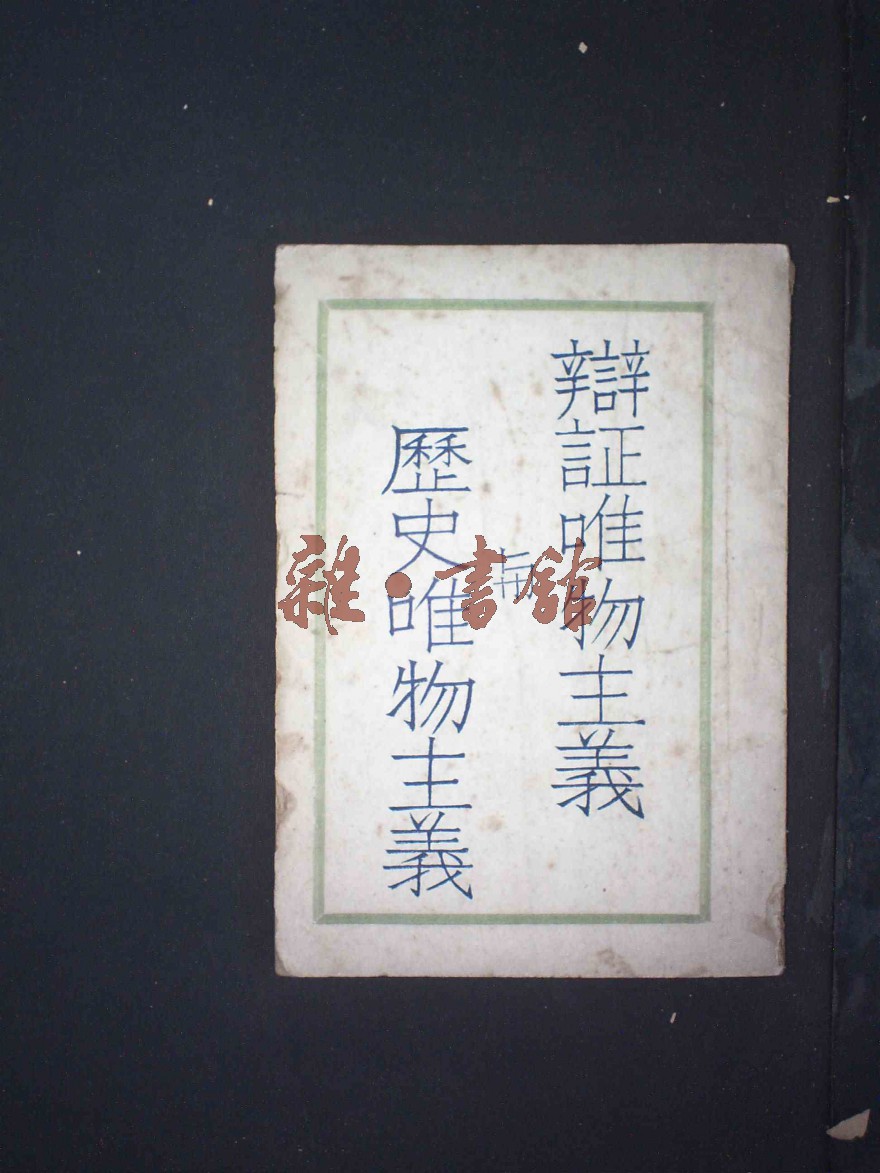 辯証唯物主義
与
歷史唯物主義
雜·書館